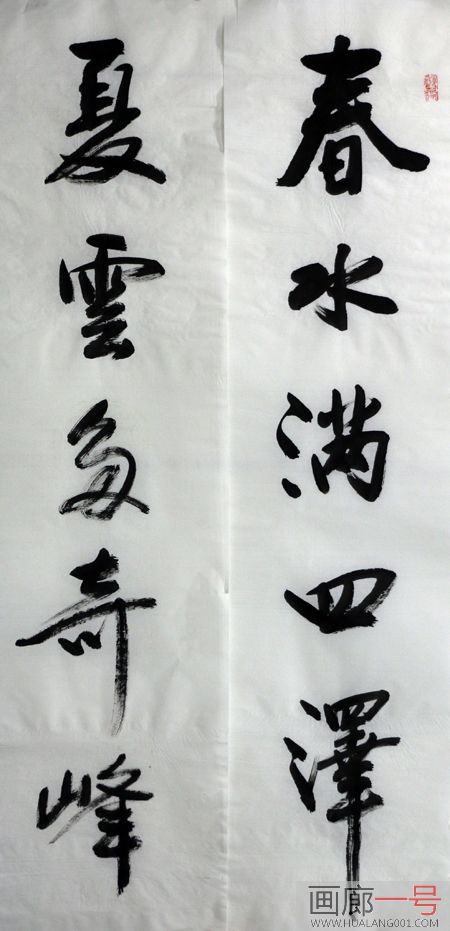 春水满四澤
夏雲多奇峰
画廊一号
WWW.HUALANG001.COM